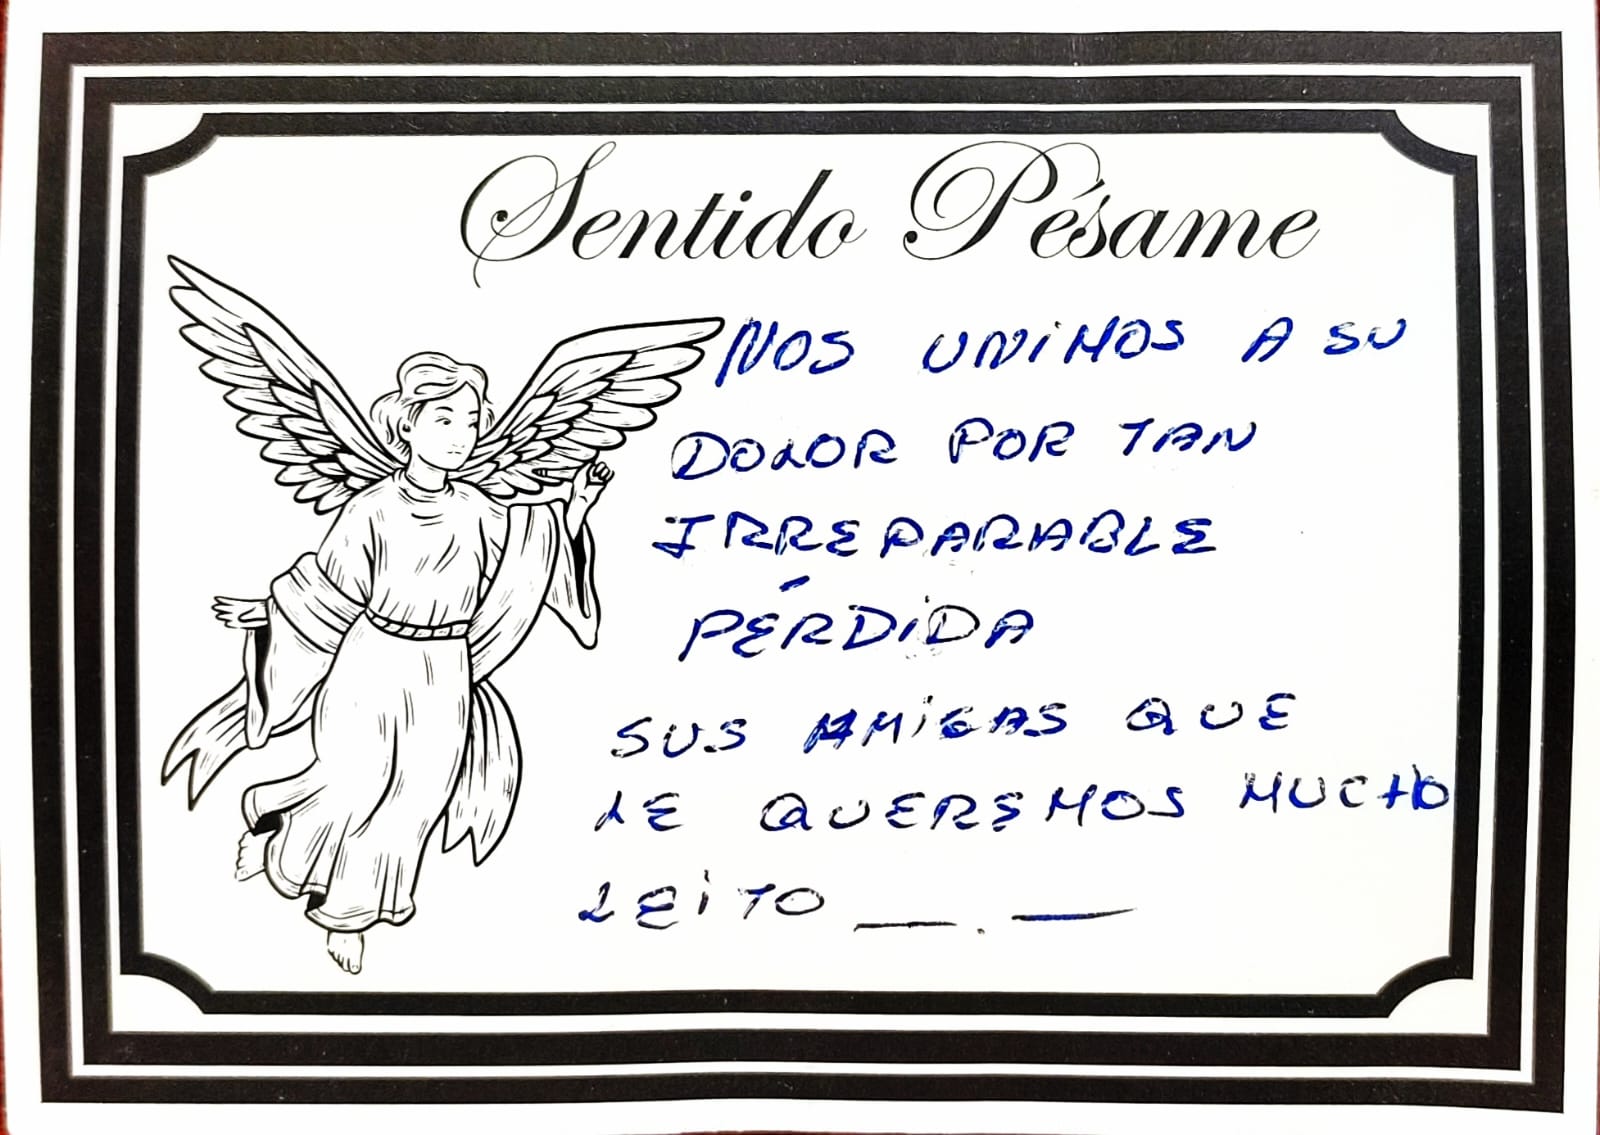 Sentido Pésame
NOS UNIMOS A SU
DOLOR POR TAN
IRREPARABLE
PÉRDIDA
SUS AMIGAS QUE
LE QUEREMOS MUCHO
LEITO __ . __